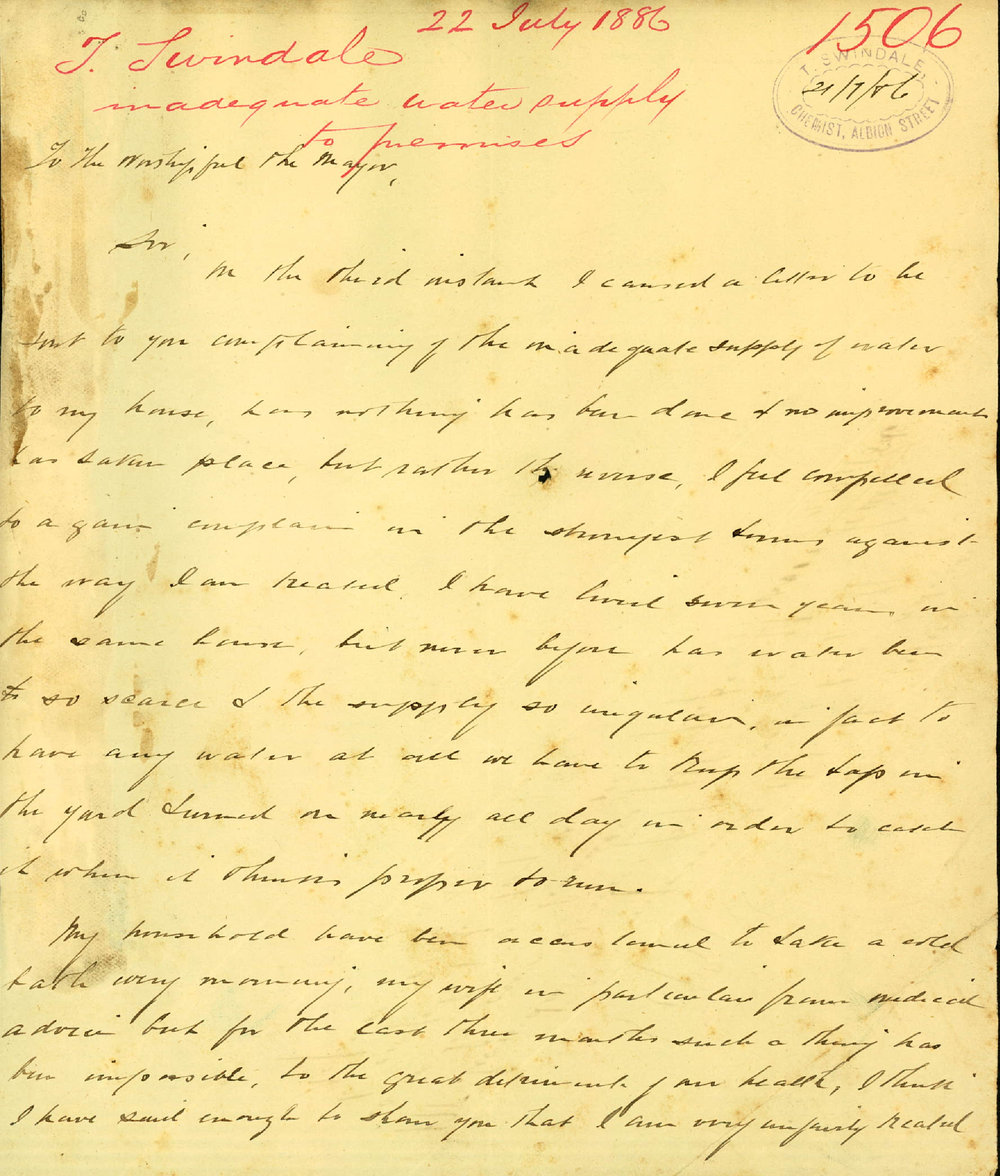 22 July 1886
1506
T. Swindale
inadequate water supply
to premises
T. SWINDALE
21/7/86
CHEMIST, ALBION STREET
To the Worshipful the Mayor,
Sir,
On the third instant I caused a letter to be
sent to you complaining of the inadequate supply of water
to my house, has nothing has been done & no improvement
has taken place, but rather the reverse, I feel compelled
to again complain in the strongest terms against
the way I am treated. I have lived seven years in
the same house, but never before has water been
so scarce & the supply so irregular, in fact to
have any water at all we have to keep the tap in
the yard turned on nearly all day in order to catch
it when it thinks proper to run.
My household have been accustomed to take a cold
bath every morning, my wife in particular from medical
advice but for the last three months such a thing has
been impossible, to the great detriment of our health, I think
I have said enough to show you that I am very unfairly treated